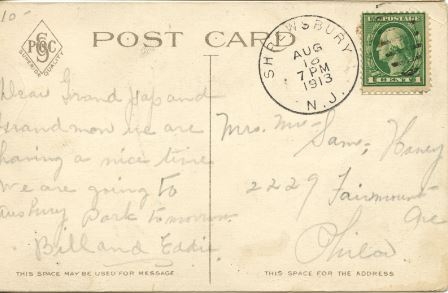 10-
P6C
SUPERIOR QUALITY
POST CARD
SHREWSBURY
AUG
18
7 PM
1913
N.J.
U.S. POSTAGE
1 CENT 1
Dear Grand pap and
Grandmom we are
having a nice time
We are going to
Asubury Park tomorrow
Bill and Eddie
Mrs. Mr- Sam, Haney
2229 Fairmount
Ave
Phila
THIS SPACE MAY BE USED FOR MESSAGE
THIS SPACE IS FOR THE ADDRESS